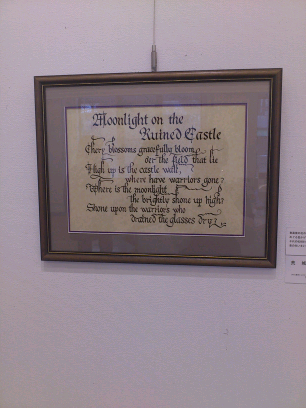 Moonlight on the
Ruined Castle
Chery blossoms gracefully bloom
oer the field that lie
High up is the castle wall,
where have warriors gone?
Where is the moonlight
the brightly shone up high?
Shone upon the warriors who
drained the glasses dry.